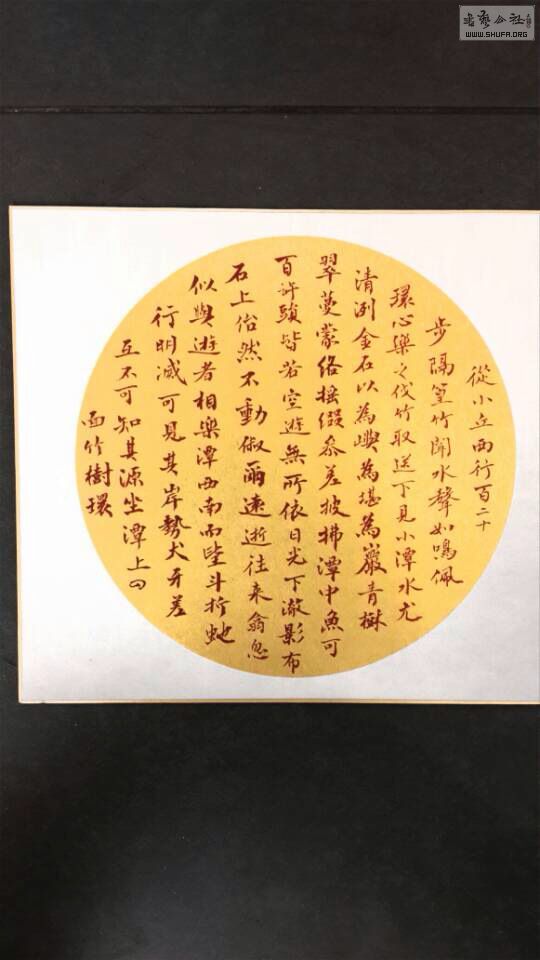 從小丘西行百二十
步隔篁竹聞水聲如鳴佩
環心樂之伐竹取送下見小潭水尤
清冽金石以為嶼為堪為巖青樹
翠蔓蒙絡搖綴參差披拂潭中魚可
百許頭皆若空遊無所依日光下澈影布
石上佁然不動俶爾遠逝往來翕忽
似與遊者相樂潭西南而望斗折蛇
行明滅可見其岸勢犬牙差
互不可知其源坐潭上四
面竹樹環
書藝公社
WWW.SHUFA.ORG